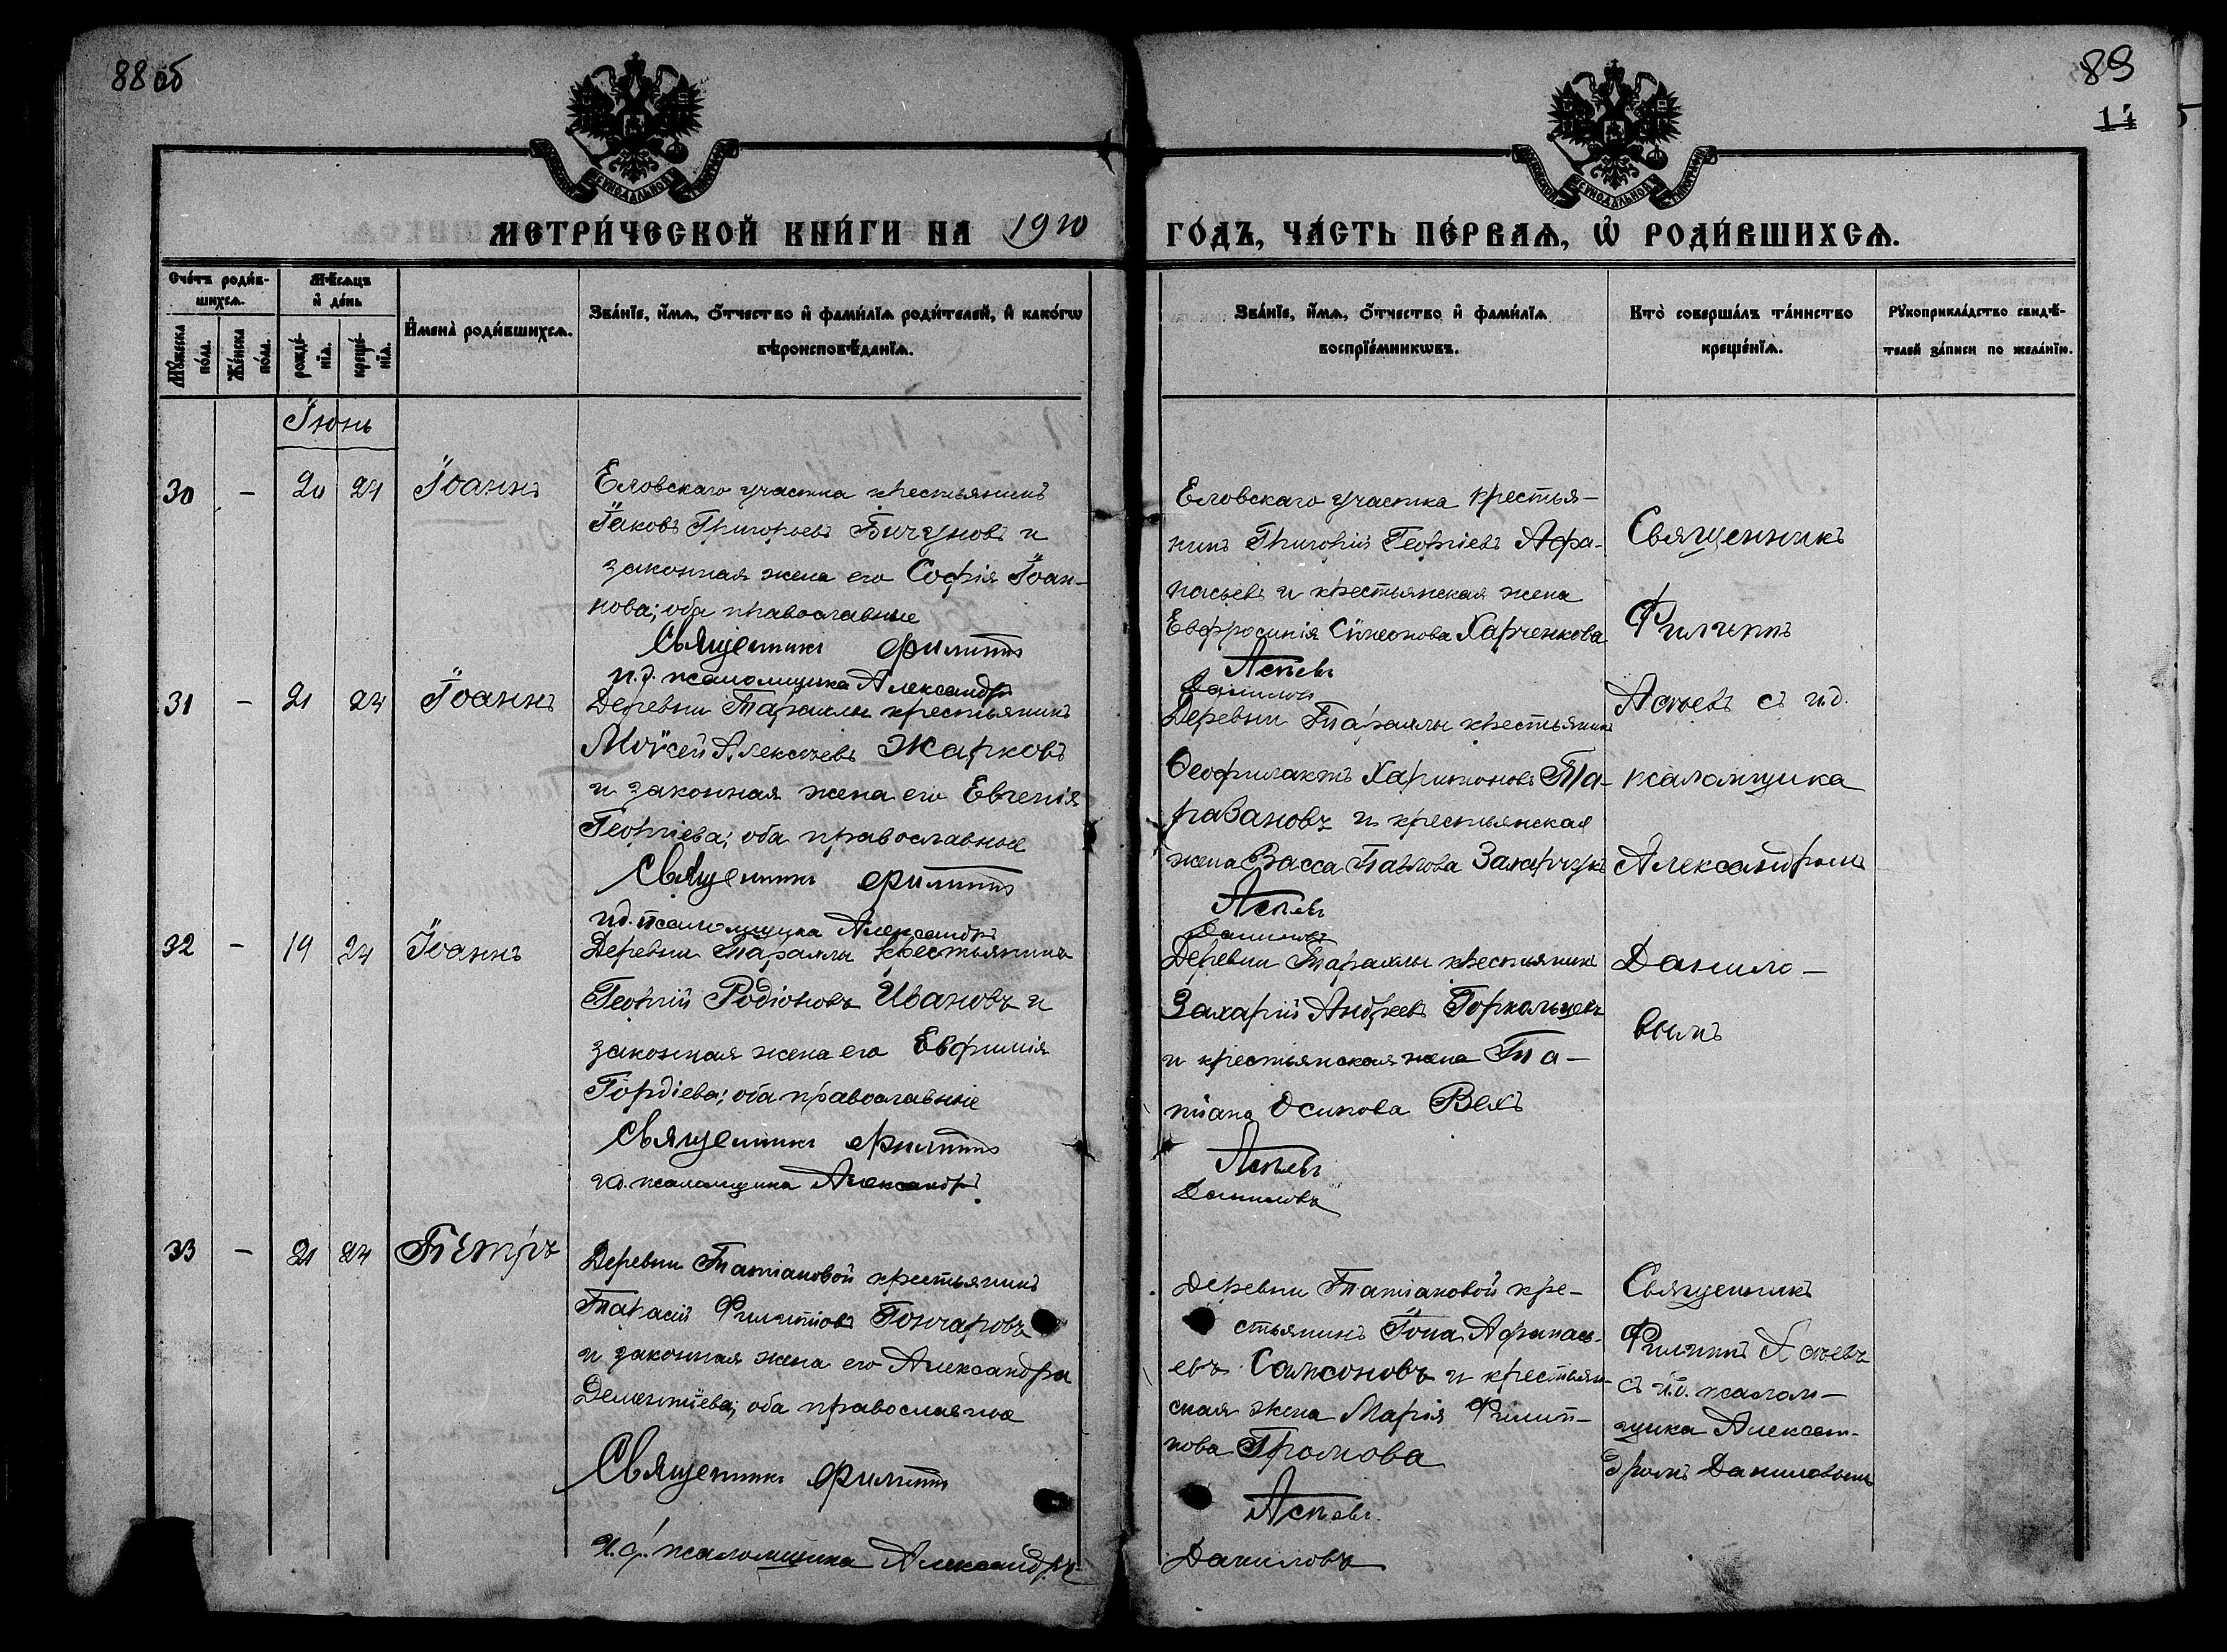 88 об
89
МЕТРИ́ЧЕСКОЙ КНИ́ГИ НА 1910
ГО́ДЪ, ЧА́СТЬ ПЕ́РВАѦ, Ѽ РОДИ́ВШИХСѦ.
Сче́тъ роди́в-
шихсѧ.
Мꙋ́жеска по́ла.
Же́нска по́ла.
Мѣ́сѧцъ
и҆ де́нь
рожде́-
нїѧ.
креще́-
нїѧ.
И҆мена̀ роди́вшихсѧ.
Зва́нїе, и҆́мѧ, о҆́тчество и҆ фами́лїѧ роди́телей, и҆ како́гѡ
вѣроисповѣ́данїѧ.
Зва́нїе, и҆́мѧ, о҆́тчество и҆ фами́лїѧ
воспрїе́мникѡвъ.
Кто̀ соверша́лъ та́инство
креще́нїѧ.
Рꙋкоприкла́дство свидѣ́-
телей за́писи по жела́нїю.
Іюнь
30 - 20 24 Іоаннъ
Еловскаго участка крестьянинъ
Іаковъ Григорьевъ Бичуновъ и
законная жена его Софія Іоан-
нова; оба православные
Священникъ Филиппъ
и.д. псаломщика Александръ
Еловскаго участка крестья-
нинъ Григорій Георгіевъ Афа-
насьевъ и крестьянская жена
Евфросинія Сѵмеонова Харченкова
Аспевъ
Даниловъ
Священникъ
Филиппъ
Аспевъ съ и.д.
псаломщика
Александромъ
Данило-
вымъ
31 - 21 24 Іоаннъ
Деревни Тараллы крестьянинъ
Моѵсей Алексѣевъ Жарковъ
и законная жена его Евгенія
Георгіева; оба православные
Священникъ Филиппъ
и.д. псаломщика Александръ
Деревни Тараллы крестьянинъ
Ѳеофилактъ Харитоновъ Та-
равановъ и крестьянская
жена Васса Павлова Захарчукъ
Аспевъ
Даниловъ
32 - 19 24 Іоаннъ
Деревни Тараллы крестьянинъ
Георгій Родіоновъ Ивановъ и
законная жена его Евфимія
Гордіева; оба православные
Священникъ Филиппъ
и.д. псаломщика Александръ
Деревни Тараллы крестьянинъ
Захарій Андреевъ Горкольцевъ
и крестьянская жена Та-
тіана Осипова Вехъ
Аспевъ
Даниловъ
33 - 21 24 Петръ
Деревни Татіановой крестьянинъ
Тарасій Филипповъ Гончаровъ
и законная жена его Александра
Дементіева; оба православные
Священникъ Филиппъ
И.д. псаломщика Александръ
Деревни Татіановой кре-
стьянинъ Іона Афанась-
евъ Самсоновъ и крестьян-
ская жена Марія Филип-
пова Громова
Аспевъ
Даниловъ
Священникъ
Филиппъ Аспевъ
съ и.д. псалом-
щика Алексан-
дромъ Даниловымъ